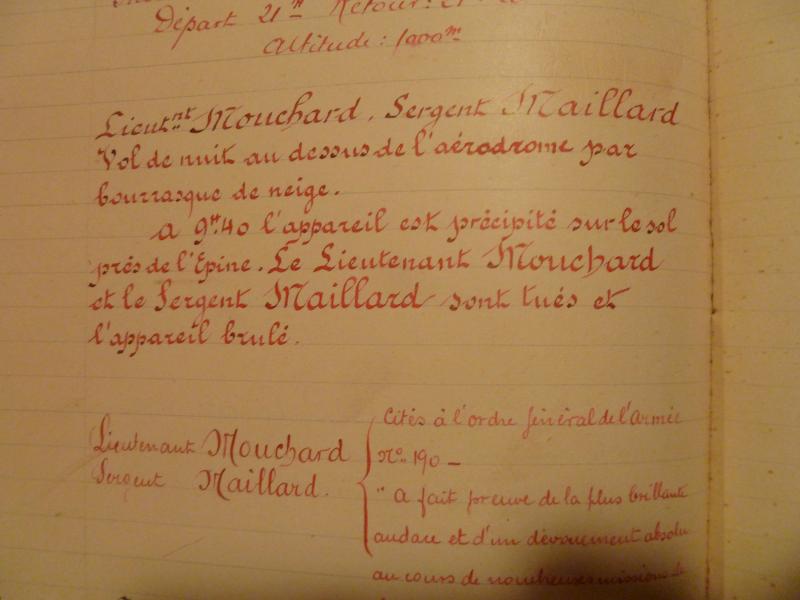 Départ 21ʰ Retour:
Altitude: 1000ᵐ
Lieutⁿᵗ Mouchard, Sergent Maillard
Vol de nuit au dessus de l'aérodrome par
bourrasque de neige.
a 9ʰ40 l'appareil est précipité sur le sol
près de l'Epine. Le Lieutenant Mouchard
et le Sergent Maillard sont tués et
l'appareil brulé.
Lieutenant Mouchard
Sergent Maillard.
Cités à l'ordre général de l'Armée
Nº 190 –
"a fait preuve de la plus brillante
audace et d'un dévouement absolu
au cours de nombreuses missions de